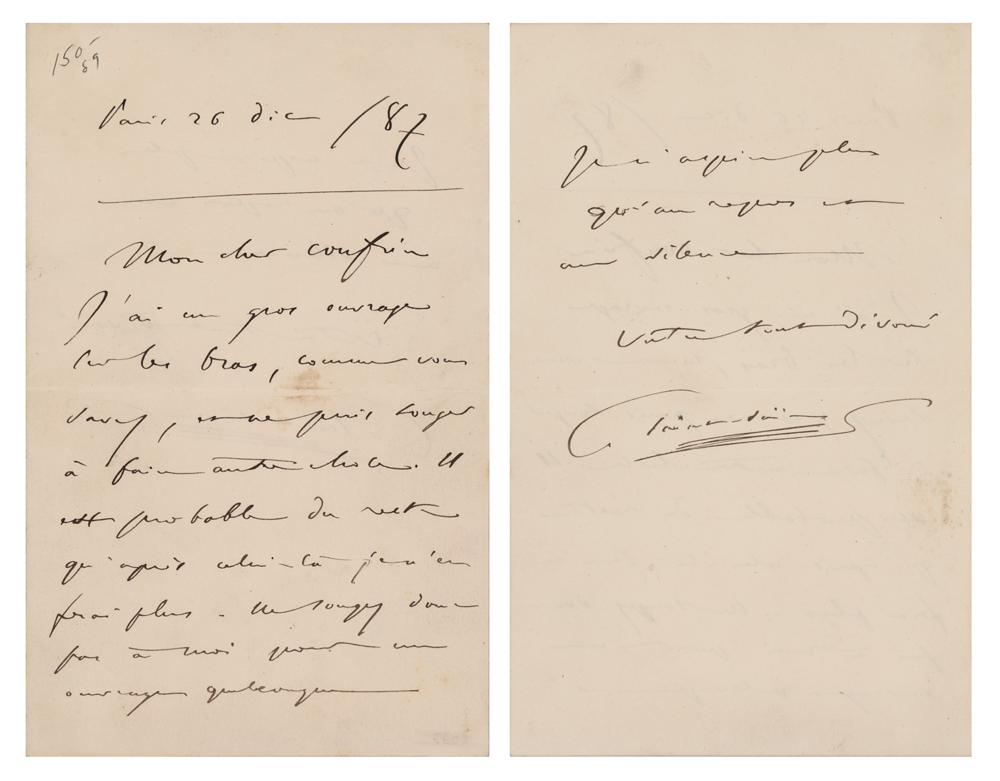 150/89
Paris 26 déc /87
Mon cher confrère
J'ai un gros ouvrage
sur les bras, comme vous
savez, et ne puis songer
à faire autre chose. Il
est probable du reste
qu'après celui-là je n'en
ferai plus. Ne songez donc
pas à moi pour un
ouvrage quelconque
Je n'aspire plus
qu'au repos et
au silence
Votre tout dévoué
C Saint-Saëns